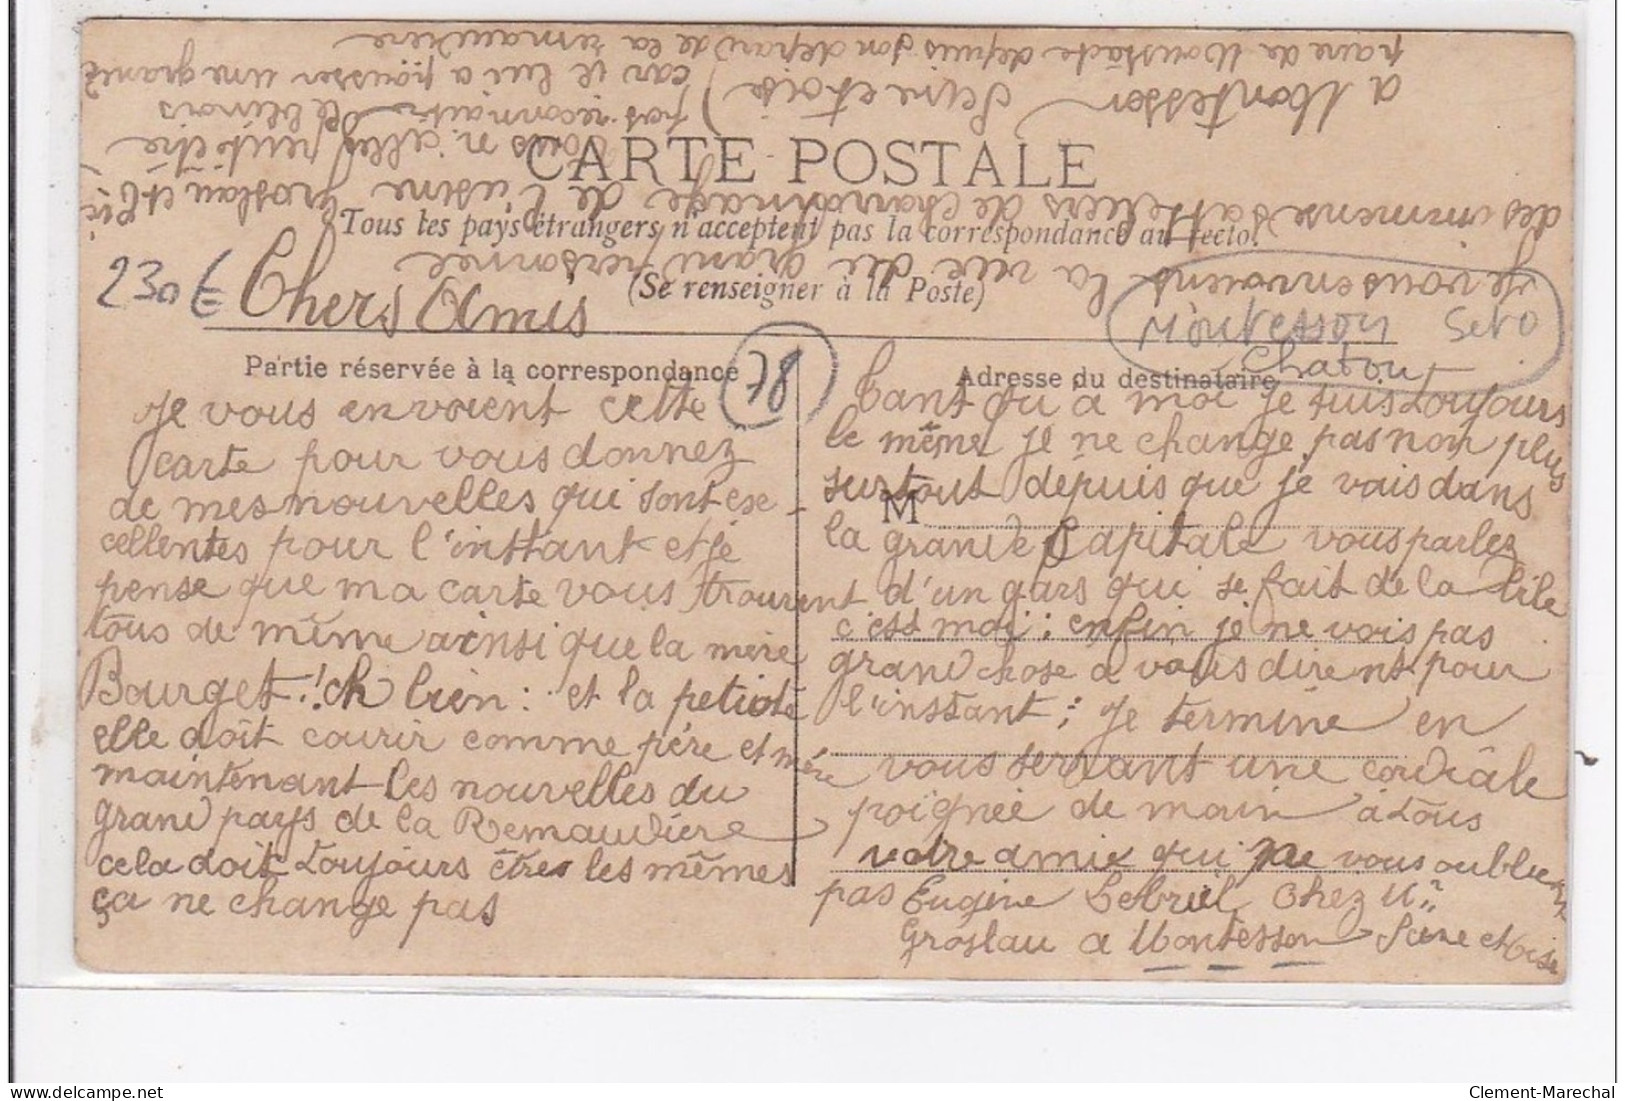 CARTE POSTALE
Tous les pays étrangers n'acceptent pas la correspondance au recto.
(Se renseigner à la Poste)
230 €
Chers Amis
Montesson SetO
Chatou
78
Partie réservée à la correspondance
Adresse du destinataire
M
Je vous envoient cette
carte pour vous donnez
de mes nouvelles qui sont exe-
cellentes pour l'instant et je
pense que ma carte vous trouvent
tous de même ainsi que la mère
Bourget !ch bien : et la petiote
elle doit courir comme père et mère
maintenant les nouvelles du
grand pays de la Remaudière
cela doit toujours êtres les mêmes
ça ne change pas
Tant qu a moi je suis toujours
le même je ne change pas non plus
surtout depuis que je vais dans
la grande Capitale vous parlez
d'un gars qui se fait de la bile
c'est moi : enfin je ne vois pas
grand chose a vous dirent pour
l'instant ; Je termine en
vous serrant une cordiale
poignée de main à tous
votre amie qui ne vous oublie
pas Eugène Lebriel Chez Mr
Groslau a Montesson Seine et Oise
Je vous envoient la vue du grand personnel
des immense atteliers de charronnage de l'usine Groslau et Cie
a Montesson Seine et oise)
Vous n'allez peut être
pas reconnaitre le blinois
car il lui a pousser une grande
paire de Moustache depuis son départ de la remaudière